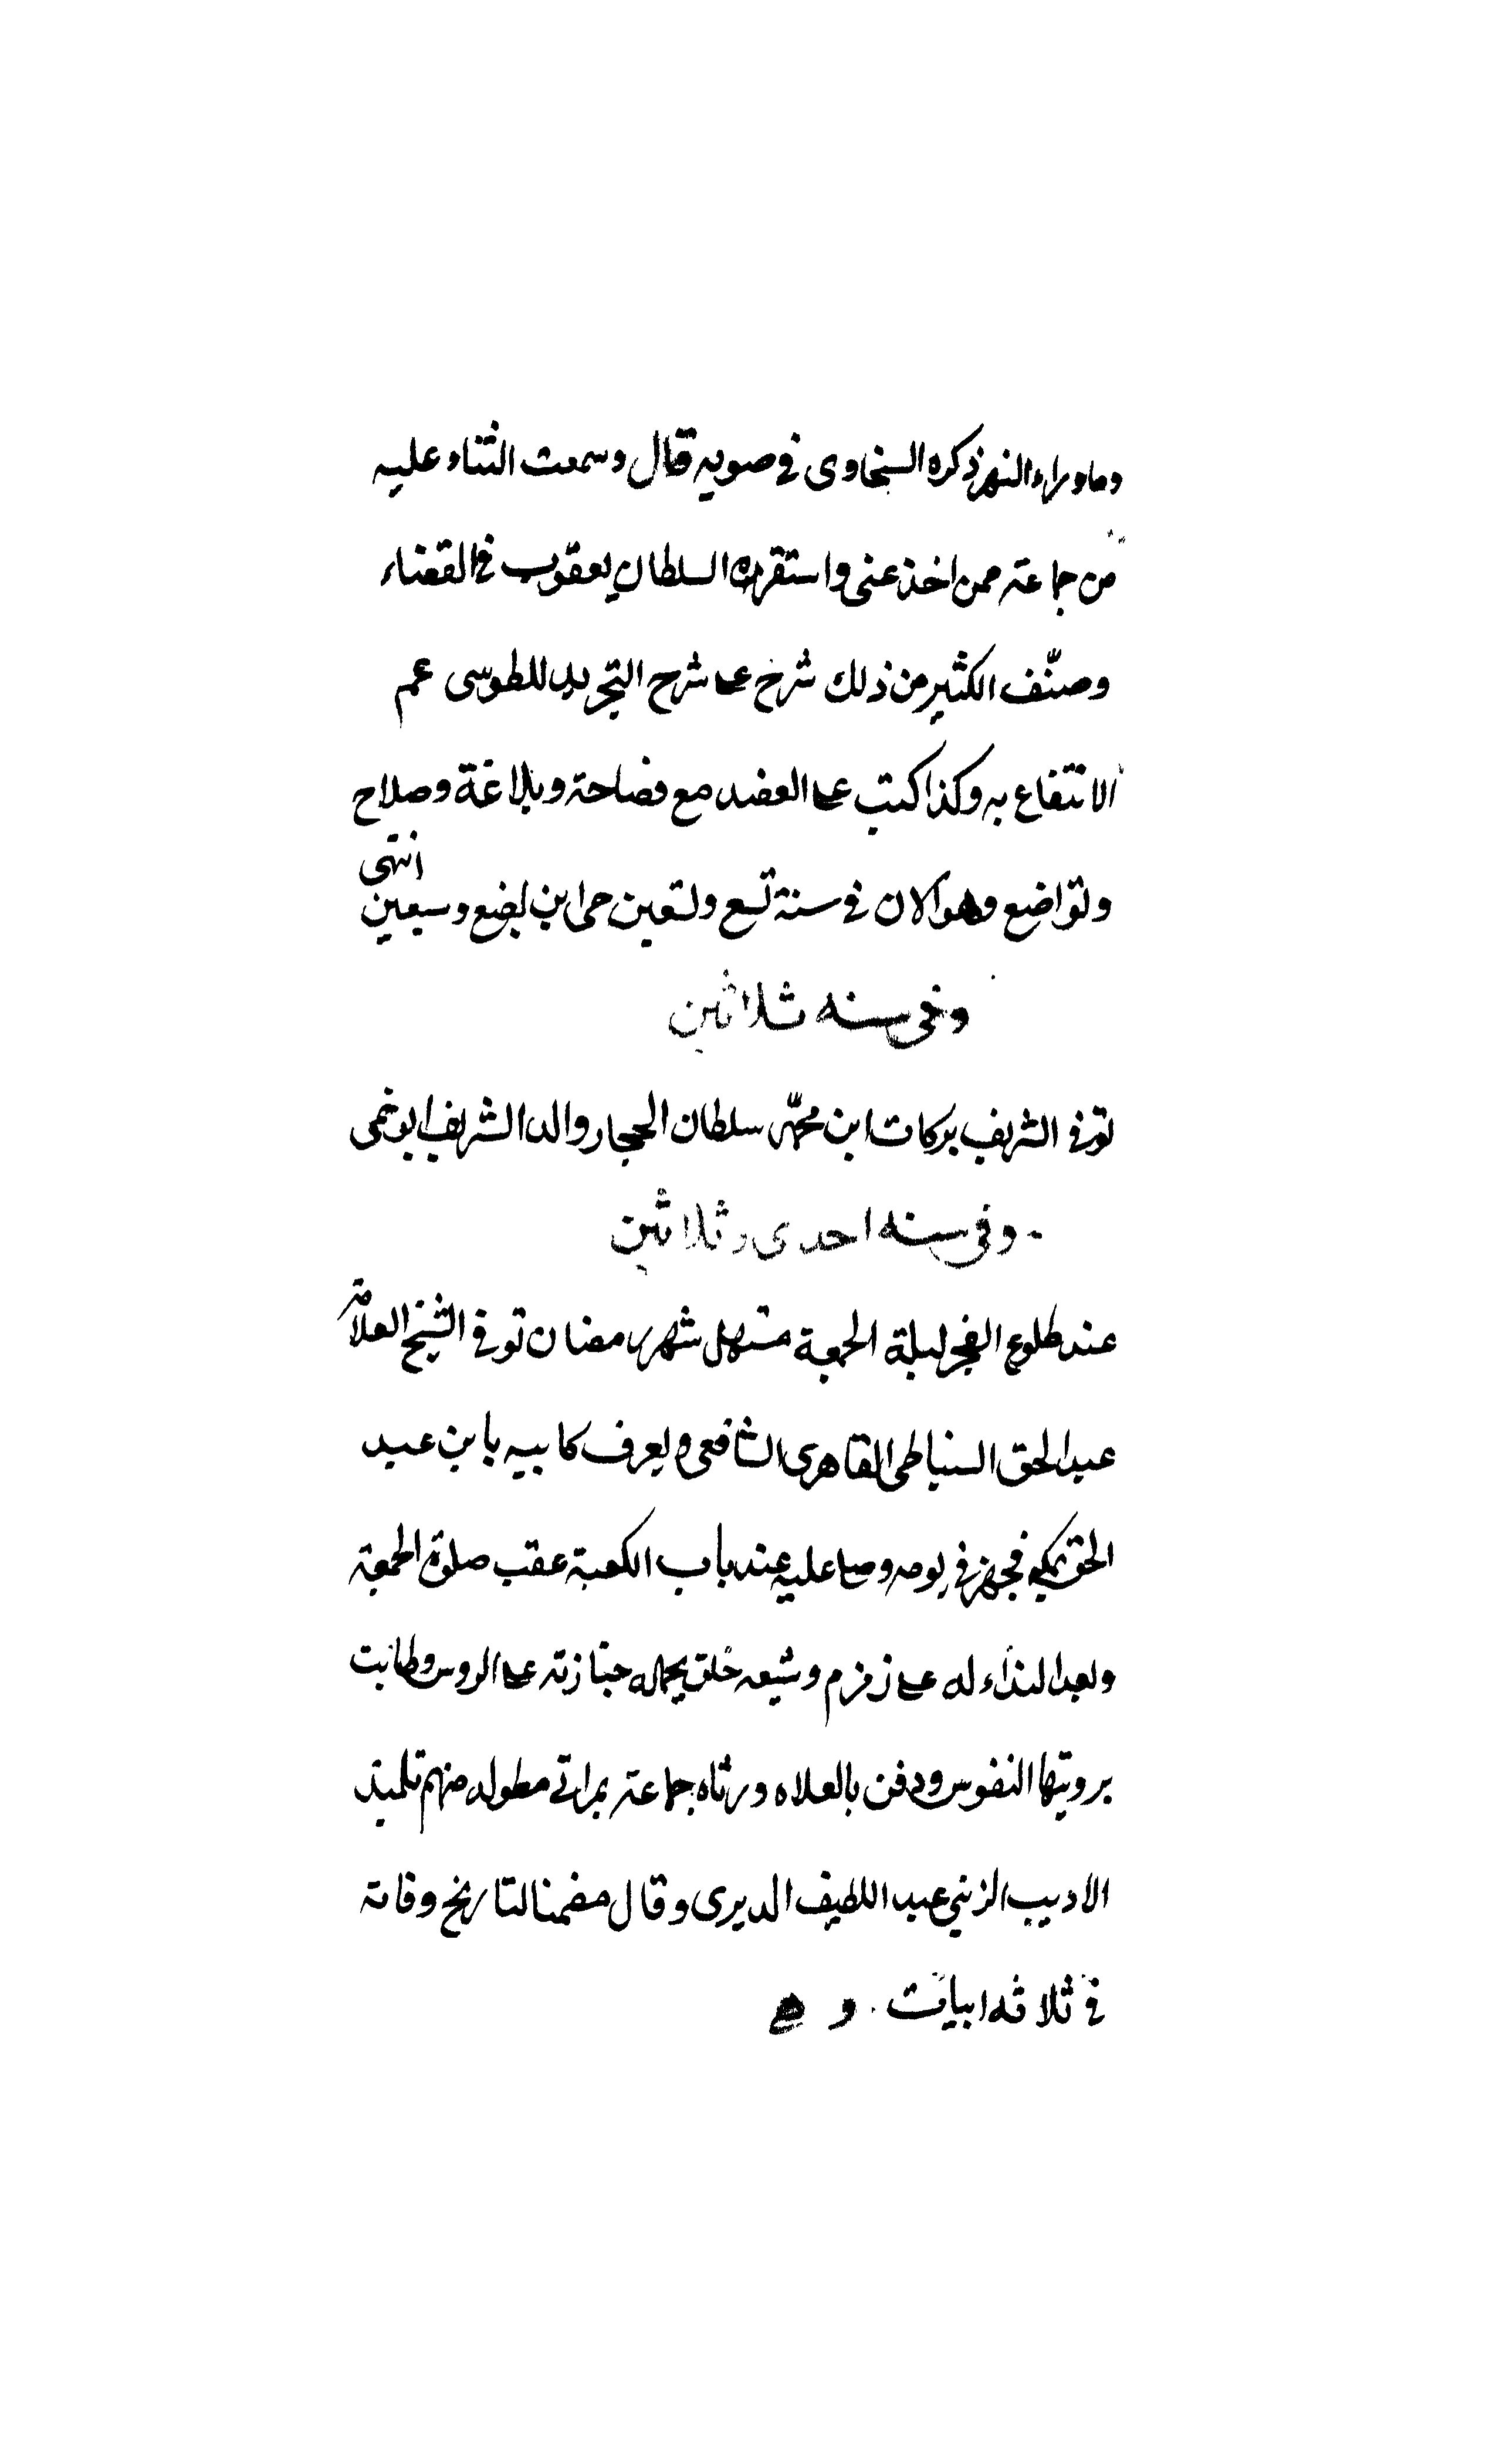 وماوراء النهر ذكره السخاوى في ضويه قال وسمعت الثناء عليه
من جماعة ممن اخذ عنى واستقر به السلطان يعقوب في القضاء
وصنّف الكثير من ذلك شرح على شرح التجريد للطوسى عم
الانتفاع به وكذا كتب على العضد مع فصاحة وبلاغة وصلاح
وتواضع وهو الان في سنة تسع وتسعين حى ابن بضع وسبعين انتهى
وفى سنه ثلاثين
توفى الشريف بركات ابن محمّد سلطان الحجاز والد الشريف ابو نمى
وفى سنه احدى وثلاثين
عند طلوع الفجر ليلة الجمعة مستهل شهر رمضان توفى الشيخ العلامة
عبد الحق السنباطى القاهرى الشافعى ويعرف كابيه بابن عبد
الحق بمكة فجهز في يومه وصلى عليه عند باب الكعبة عقب صلوة الجمعة
وبعد النداء له على زمزم وشيعه خلق يحمله جنازته على الروس وطابت
برويتها النفوس ودفن بالمعلاه ورثاه جماعة بمراثى مطوله منهم تلميذ
الاديب الزينى عبد اللطيف الديرى وقال مضمنا لتاريخ وفاته
في ثلاثه ابيات وهي